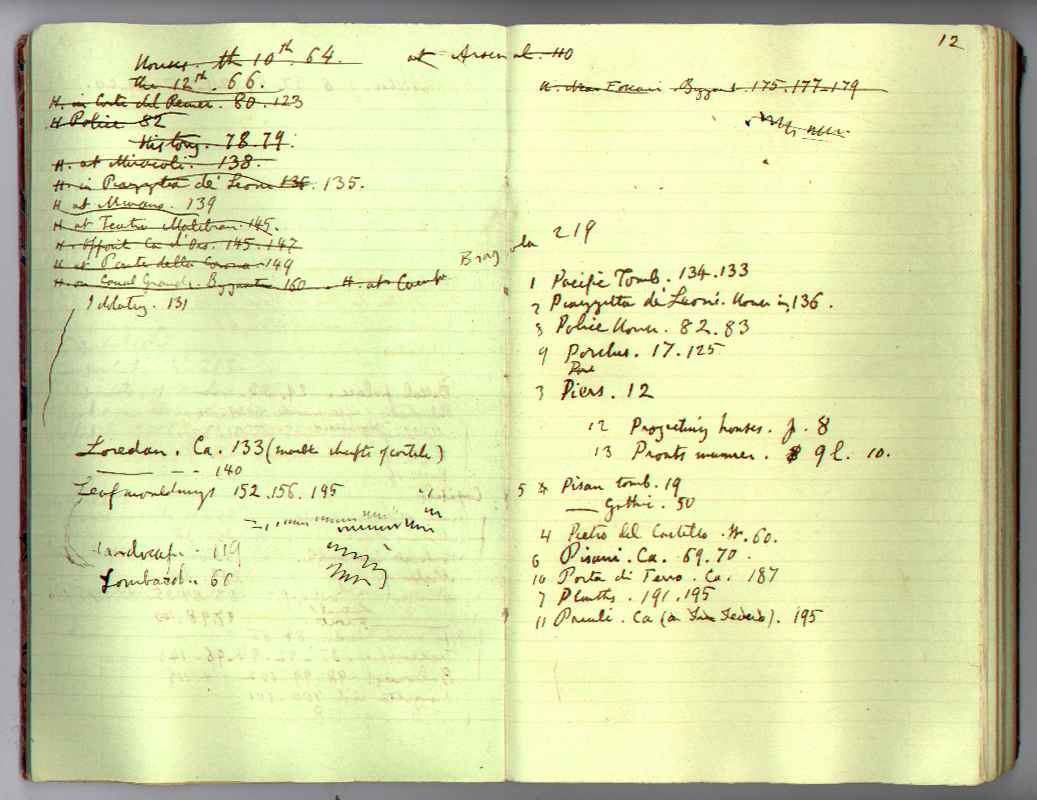 Houses. th 10th 64.
the 12th. 66.
H. in Corte del Remer. 80. 123
H Police 82
History. 78.79.
H. at Miracoli. 138.
H. in Piazzetta de' Leoni 135. 135.
H at Murano. 139
H at Teatro Malibran. 145.
H. opposit Ca d'Oro. 145. 147
H at Ponte della Corona 149
H. on Canal Grande. Byzantine 160 - H. at
Idolatry. 131
Loredan. Ca. 133 (marble shafts of cortile)
—— - - 140
Leaf mouldings 152. 156. 195
Landscape. 119
Lombard. 60
12
at Arsenal. 110
H. near Foscari Byzant. 175. 177-179
Bragola 219
1 Pacific Tomb. 134. 133
2 Piazzetta de' Leoni. House in, 136.
3 Police House. 82. 83
9 Porches. 17. 125
3 Piers. 12
12 Projecting houses. p. 8
13 Pronts manner. 9 l. 10.
5 4 Pisan tomb. 19
—— Gothic. 50
4 Pietro del Castello. W. 60.
6 Pisani. Ca. 69. 70.
10 Porta di Ferro. Ca. 187
7 Plinths. 191. 195
11 Ca (a San Severo). 195